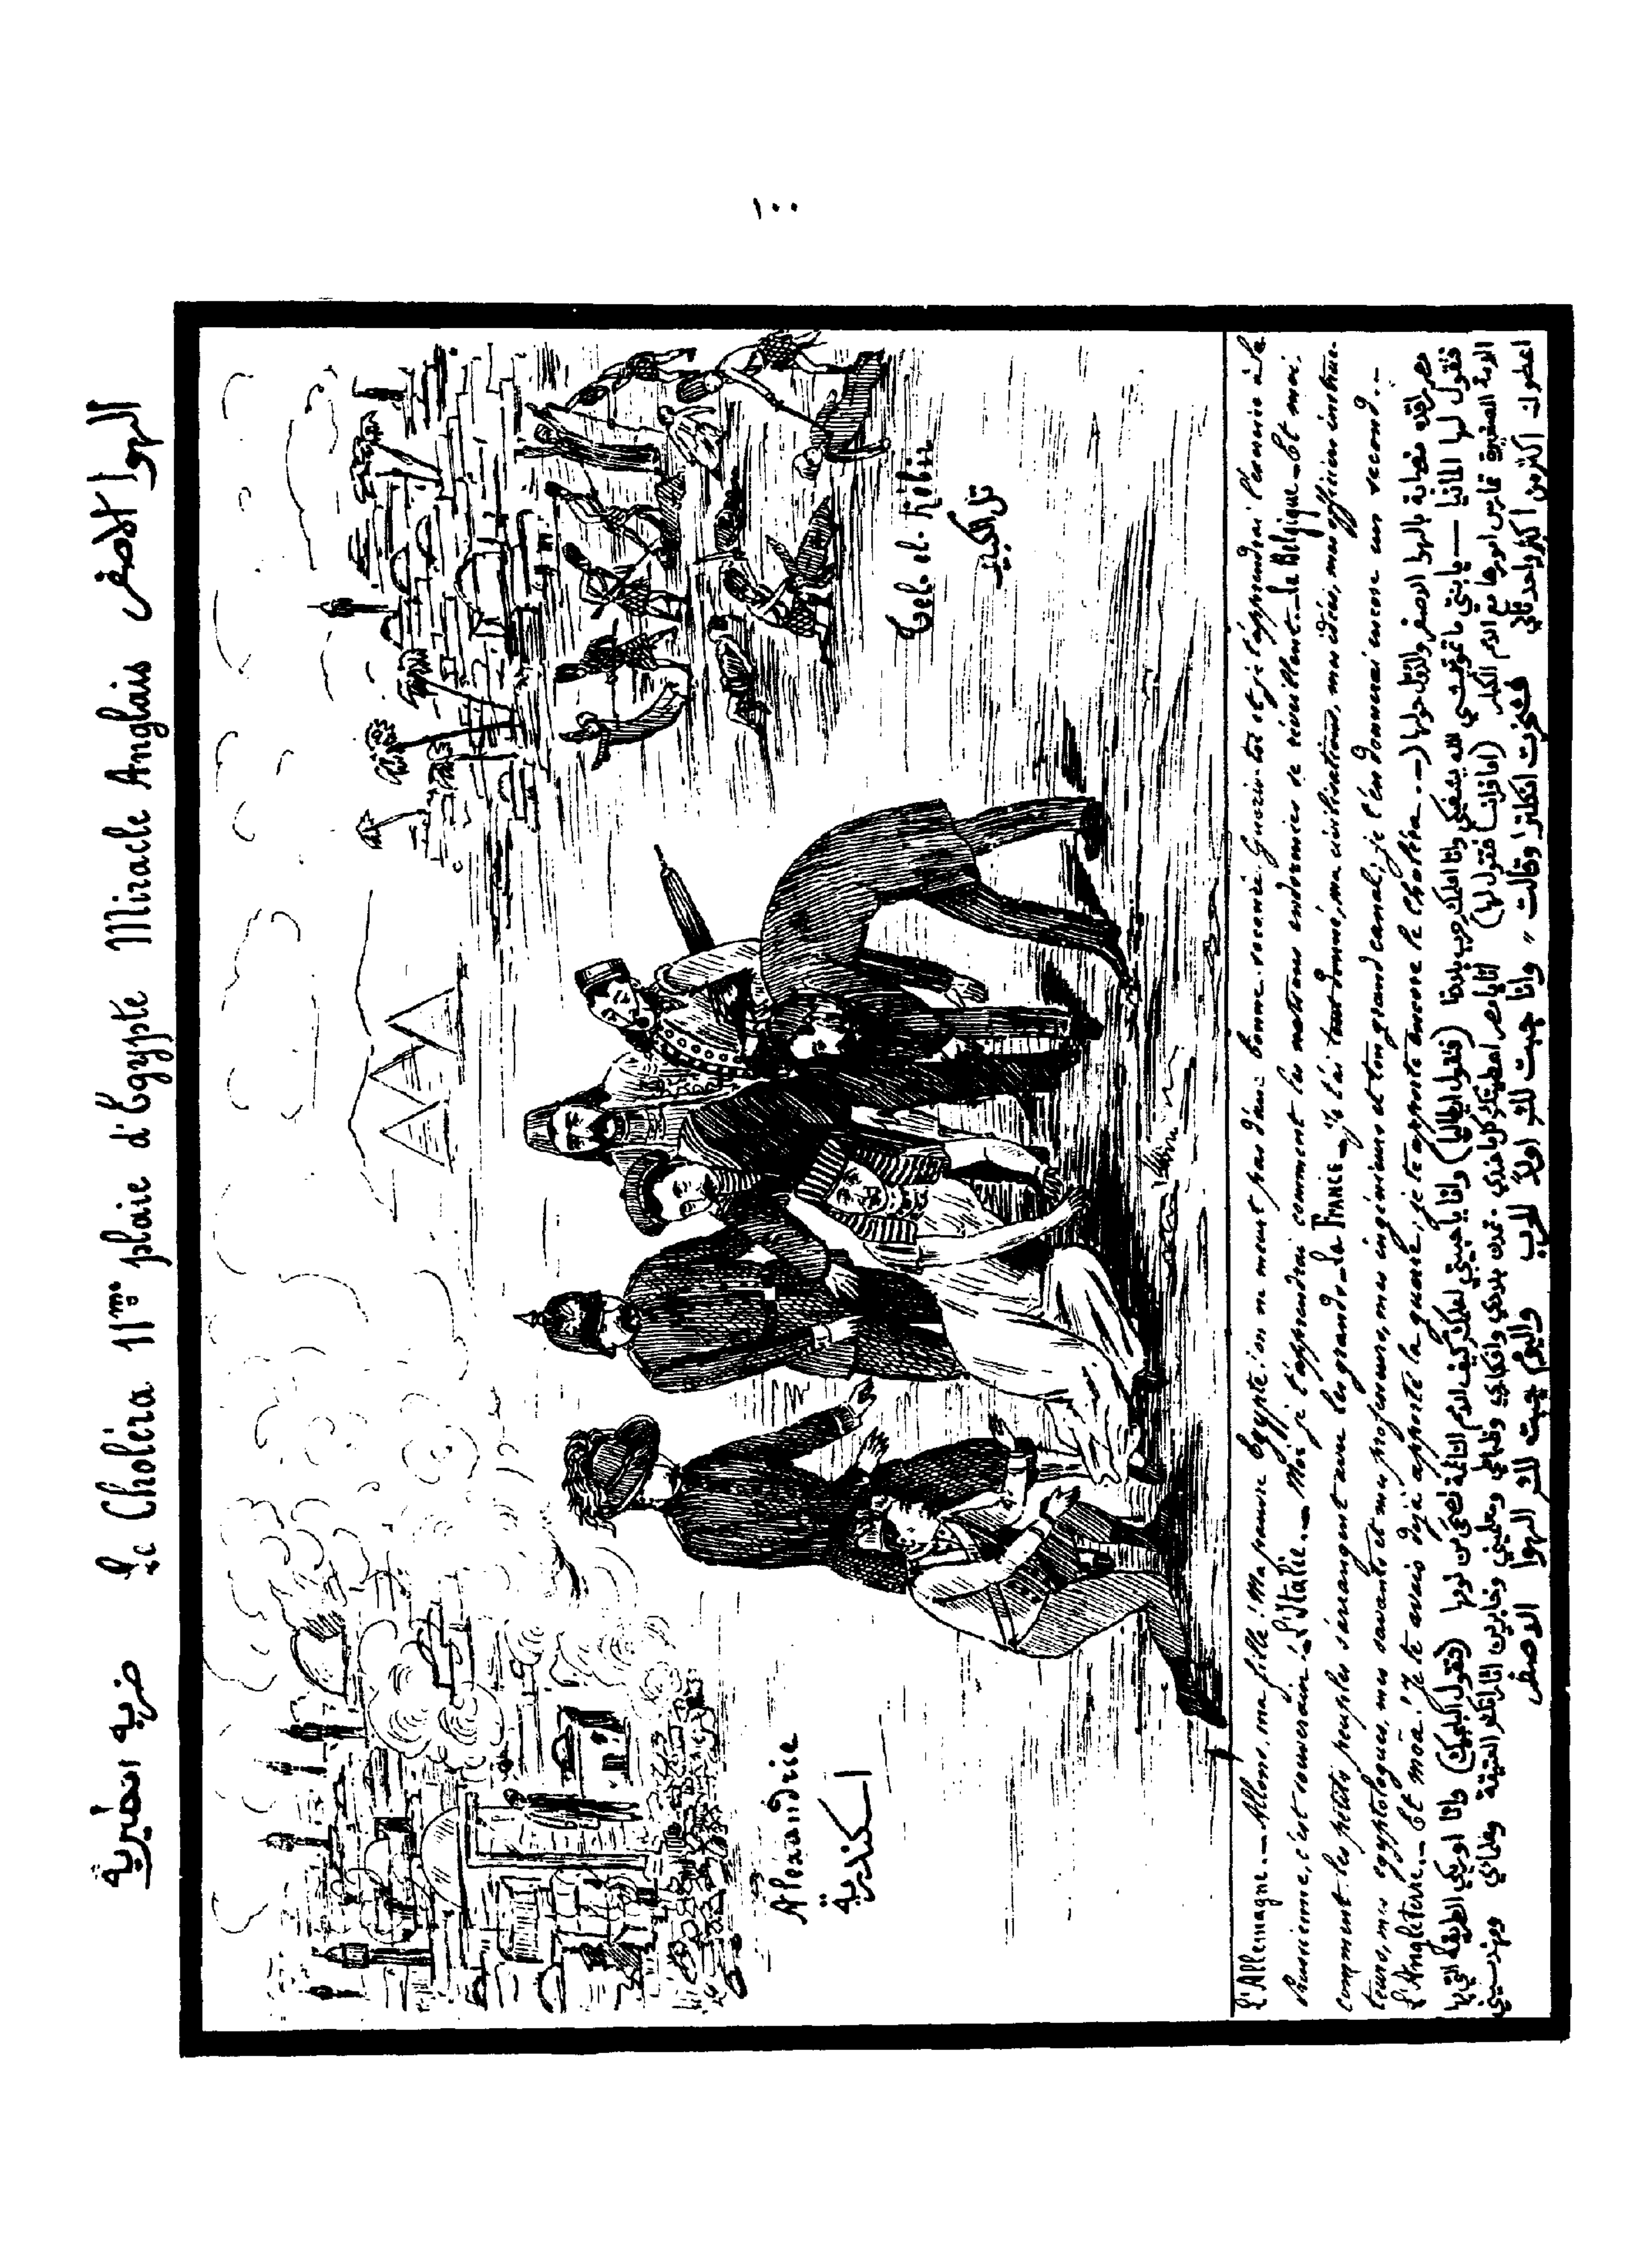 ضربه انكليزية Le Choléra 11me plaie d'Egypte Miracle Anglais الهوا الاصفر
Alexandrie
اسكندرية
Tel-el-Kébir
تل الكبير
L'Allemagne. — Allons, ma fille! Ma pauvre Egypte! on ne meurt pas d'une bonne saignée. Guéris-toi et je t'apprendrai l'exercice à la
Prussienne, c'est souverain. — L'Italie. — Moi je t'apprendrai comment les nations endormies se réveillent. — La Belgique. — Et moi
comment les petits peuples s'arrangent avec les grands. — La France. — Je t'ai tout donné, ma civilisation, mes idées, mes officiers instruc-
teurs, mes egyptologues, mes savants et mes professeurs, mes ingénieurs et ton grand canal; je t'en donnerai encore un second. —
L'Angleterre. — Et moâ! Je te avais déjà apporté la guerre, je te apporte encore le choléra. —
فتقول لها المانيا — يا بنتي ما تموتيش الله يشفيكي وانا اعلمك حرب بلادنا (فتقول ايطاليا) وانا يا حبيبتي اعلمك كيف الامم النائمة تصحى من نومها (فتقول البلجيك) وانا اوريكي الطريقة التي بها
الامة الصغيرة تقايس امورها مع الامم الكبار (اما فرانسا فتقول لها) انا يا مصر اعطيتك كل ما عندي تمدن بلادي وافكاري وظباطي ومعلمين وعلمائي ومهندسيني
اعطوك اكبر واحد تاني فنخرت انكلترا وقالت " وانا جبت لك اولا الحرب واليوم جبت لك الهوا الاصفر
١٠٠